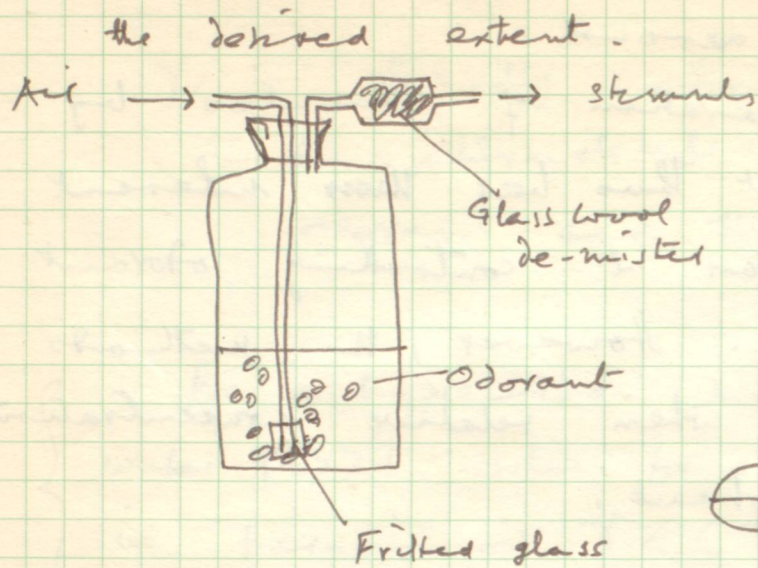 the desired extent.
Air
stimulus
Glass wool
de-mister
Odorant
Fritted glass